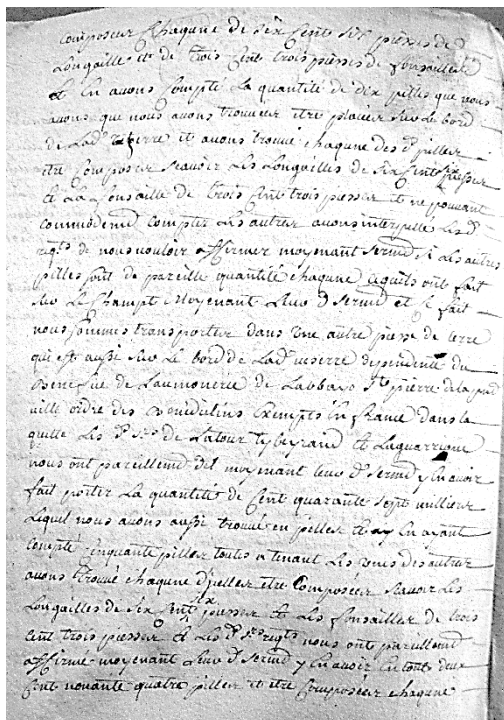 composeés chaqune de six cents six piesses de
Longailles et de trois cent trois piesses de fonsailles
et En avons Compté la quantité de dix pilles que nous
avons que nous avons trouvées etre placées sur le bord
de Lad. et avons trouvé chaqune des d. pilles
etre Composés scavoir Les Longailles de six Cents six piesses
et La fonsaille de trois Cent trois piesses et ne pouvant
commodemt compter Les autres avons interpellé Les d.
reqts de nous vouloir affirmer moyenant sermt si Les autres
pilles sont de pareille quantité chaqune ce quils ont fait
sur Le Champt moyenant Leur d. sermt et ce fait
nous sommes transportés dans une autre piesse de terre
qui est aussi sur Le bord de Lad. dependente du
Benefice de Laumonerie de Labbaye St pierre de la
ville ordre des Benedictins Exempts En france dans la
quelle Les d. Srs de Latour et Laquarrigue
nous ont pareillemt dit moyenant leur d. sermt y En avoir
fait porter La quantité de Cent quarante sept milliers
Lequel nous avons aussi trouvé en pilles et En ayant
Compté cinquante pilles toutes atenant Les unes des autres
avons trouvé chaqune d. pilles etre Composées scavoir Les
Longailles de six Cents six piesses et Les fonsailles de trois
cent trois piesses et Les d. Srs reqts nous ont pareillemt
affirmé moyenant Leur d. sermt y En avoir En tout deux
Cent nonante quatre pilles et etre Composées chaqune